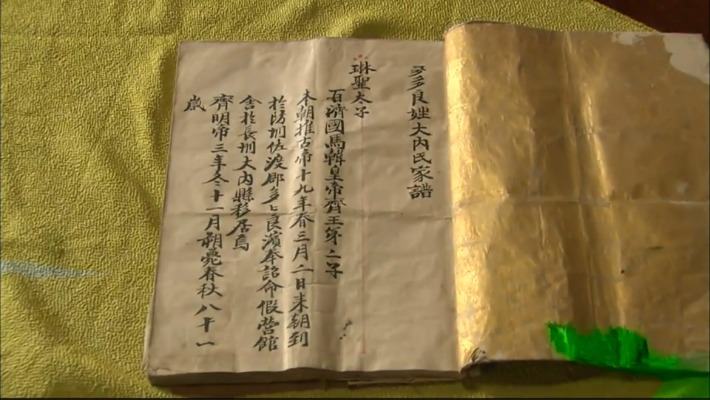 多多良姓大内氏家譜
琳聖太子
百濟國馬韓皇帝齊王第二子
本朝推古帝十九年春三月二日来朝到
於防州佐渡郡多々良濱奉詔命假營館
舎於長州大内縣移居焉
齊明帝三年冬十一月朔薨春秋八十一
歳